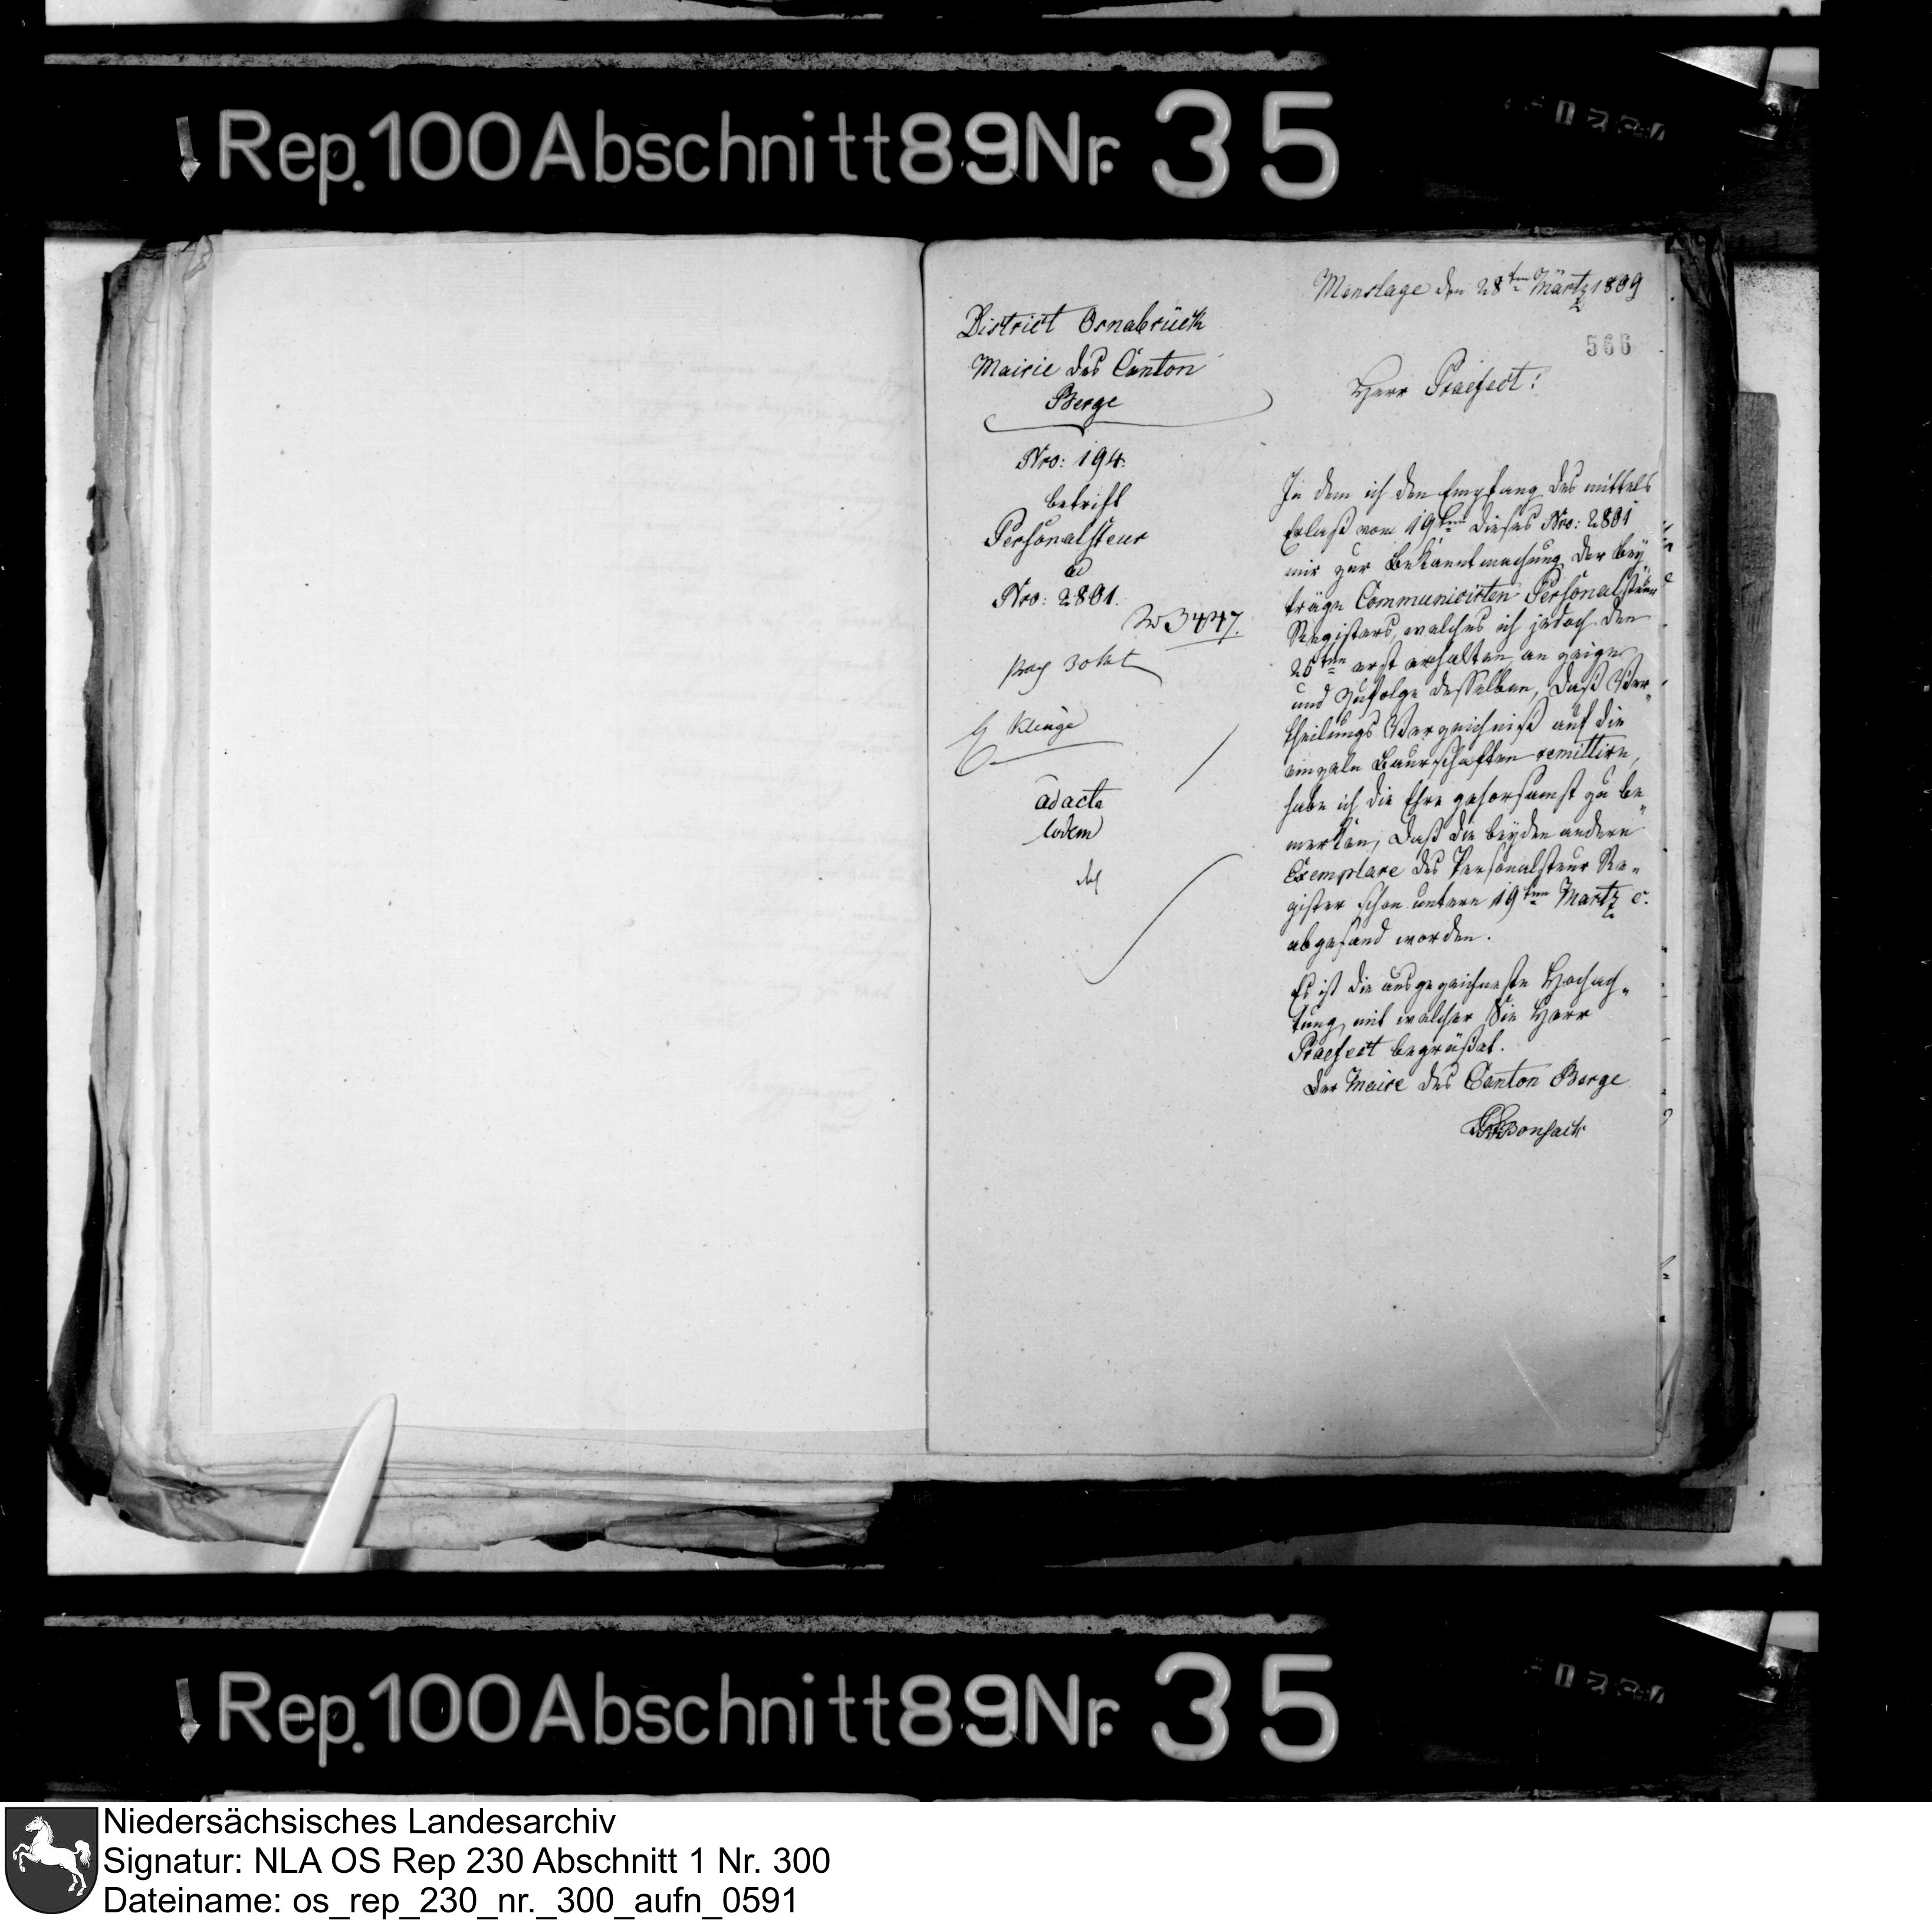 Rep. 100 Abschnitt 89 Nr. 35
Menslage den 28ten Märtz 1809
566
District Osnabrück
Mairie des Canton
Berge
Nro: 194.
betrift
Personalsteur
ad
Nro: 2801.
3447.
Klinge
ad acta
eodem
Herr Praefect!
In dem ich den Empfang des mittels
Erlaß vom 19ten dieses Nro: 2801
mir zur Bekanntmachung der Bey
träge Communicirten Personalsteur
Registers, welches ich jedoch den
25ten erst erhalten, an zeige
und zufolge desselben, daß Ver-
theilungs Verzeichniß auf die
einzeln Baurschaften remittire,
habe ich die Ehre gehorsamst zu be
merken, daß die beyden andern
Exemplare des Personalsteur Re-
gister schon untern 19ten Martz c.
abgesand worden.
Es ist die ausgezeichneste Hochach-
tung mit welcher Sie Herr
Praefect begrüßet.
Der Maire des Canton Berge
Bonsack
Rep. 100 Abschnitt 89 Nr. 35
Niedersächsisches Landesarchiv
Signatur: NLA OS Rep 230 Abschnitt 1 Nr. 300
Dateiname: os_rep_230_nr._300_aufn_0591